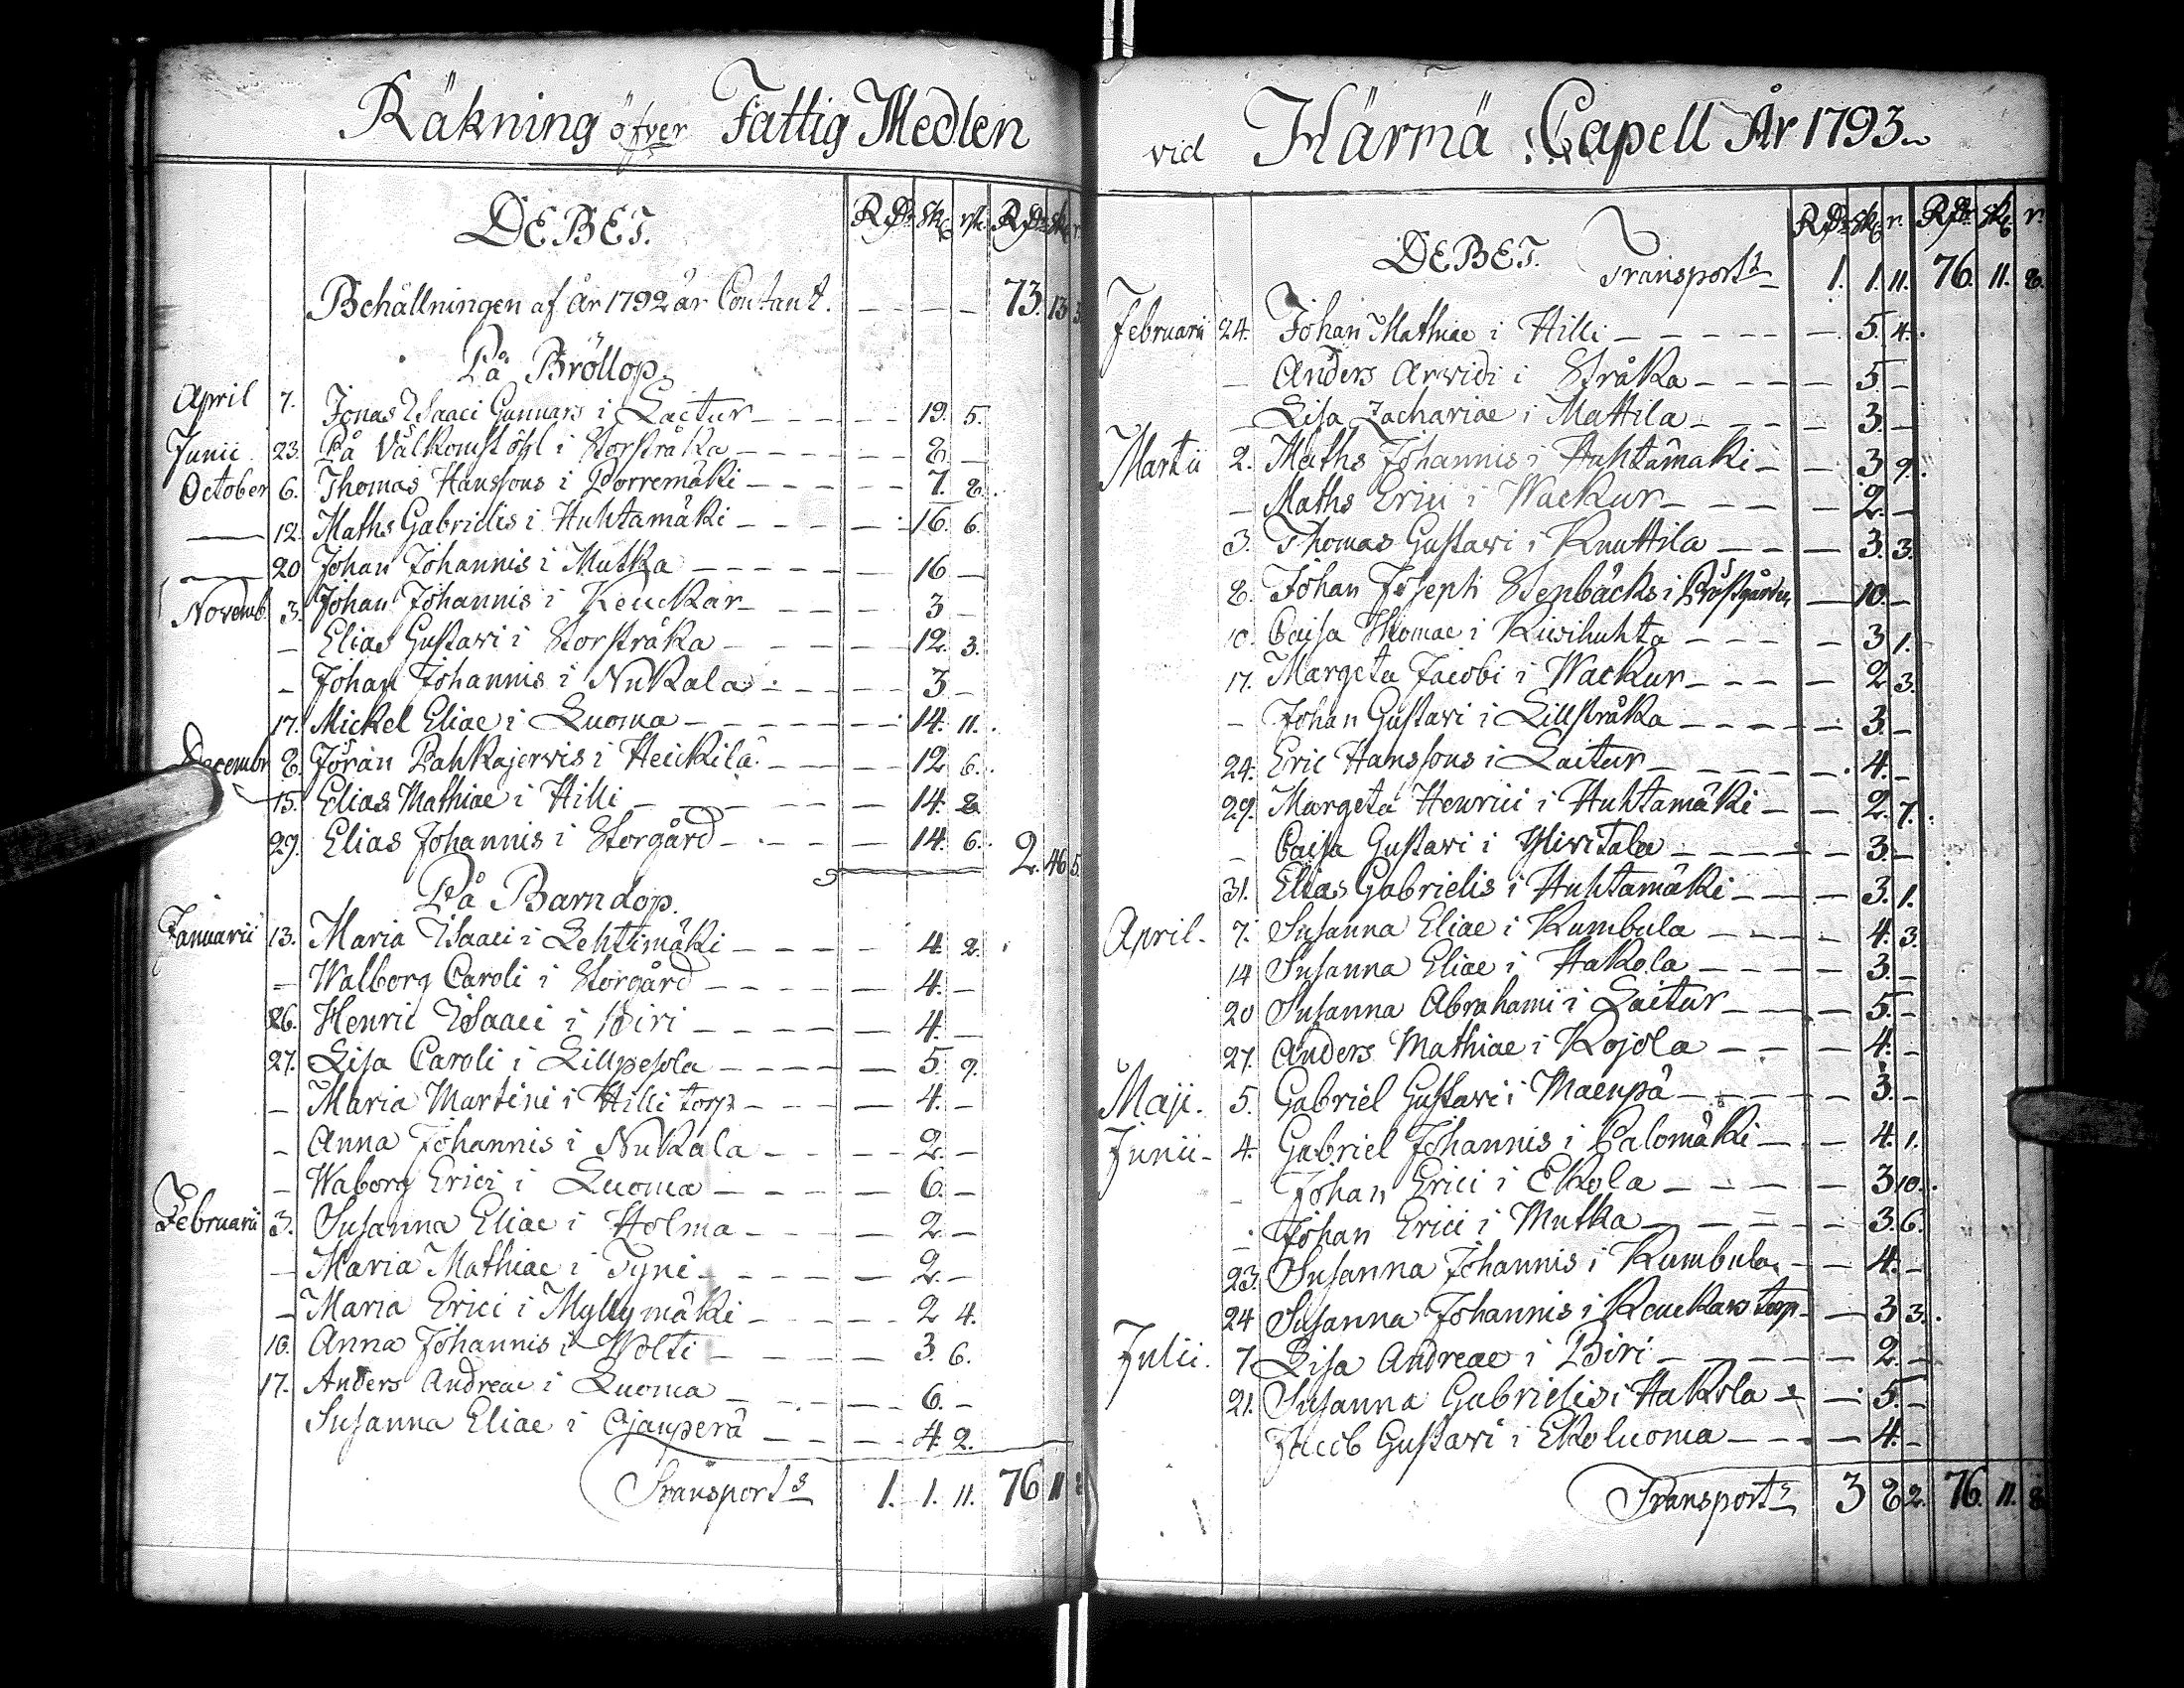 Räkning öfver Fattig Medlen
DEBET. RDr Sk. rst. RDr Sk r
Behållningen af år 1792 är Contant. - - - - 73. 13 3
På Bröllop.
April 7. Jonas Isaaci Gunnars i Laitur - - - - 19. 5.
Junii 23. På Välkomst öhl i Storstråka - - - - 8 -
October 6. Thomas Hanssons i Porremäki - - - - 7. 8.
— 12. Maths Gabrielis i Huhtamäki - - - - 16. 6.
— 20 Johan Johannis i Mutka - - - - 16 -
Novemb. 3. Johan Johannis i Keuckar - - - - 3 -
- Elias Gustavi i Storstråka - - - - 12 3.
- Johan Johannis i Nukala - - - - 3 -
17. Mickel Eliae i Luoma - - - - 14. 11.
Decembr 8. Jöran Pahkajerwis i Heickilä - - - - 12 6.
15. Elias Mathiae i Hilli - - - - 14. 8
29. Elias Johannis i Storgård - - - - 14. 6. 2. 46 5.
På Barndop.
Januarii 13. Maria Isaaci i Lehtimäki - - - - 4. 2.
- Walborg Caroli i Storgård - - - - 4. -
26. Henric Isaaci i Piri - - - - 4. -
27. Lisa Caroli i Lillpesola - - - - 5. 9.
- Maria Martini i Hilli torp - - - - 4. -
- Anna Johannis i Nukala - - - - 2. -
- Waborg Erici i Luoma - - - - 6. -
Februarii 3. Susanna Eliae i Holma - - - - 2 -
- Maria Mathiae i Tyni - - - - 2. -
- Maria Erici i Myllymäki - - - - 2 4.
10. Anna Johannis i Wolti - - - - 3. 6.
17. Anders Andreae i Luoma - - - - 6. -
Susanna Eliae i Ojanperä - - - - 4. 2.
Transport 1. 1. 11. 76 11
vid Härmä Capell År 1793
RDr Sk r. RDr Sk r.
DEBET. Transport 1. 1. 11. 76. 11. 8.
Februarii 24. Johan Mathiae i Hilli - - - - 5. 4.
- Anders Arvidi i Stråka - - - - 5 -
- Lisa Zachariae i Mattila - - - - 3. -
Martii 2. Maths Johannis i Huhtamäki - - 3 9.
- Maths Erici i Wackur - - - - 2. -
3. Thomas Gustavi i Knuttila - - - 3. 3.
8. Johan Josephi Stenbäcks i Prästgården - 10. -
10. Caisa Thomae i Kivihuhta - - - - 3 1.
17. Margeta Jacobi i Wackur - - - - 2 3.
- Johan Gustavi i Lillstråka - - - - 3. -
24. Eric Hanssons i Laitur - - - - 4. -
29. Margeta Henrici i Huhtamäki - - 2. 7.
- Caisa Gustavi i Yliwitala - - - - 3. -
31. Elias Gabrielis i Huhtamäki - - - 3. 1.
April. 7. Susanna Eliae i Kumbula - - - - 4. 3
14 Susanna Eliae i Hakola - - - - 3. -
20 Susanna Abrahami i Laitur - - - - 5. -
27. Anders Mathiae i Kojola - - - - 4. -
Maji. 5. Gabriel Gustavi i Maenpä - - - - 3. -
Junii - 4. Gabriel Johannis i Palomäki - - - 4. 1.
- Johan Erici i Ekola - - - - 3 10.
- Johan Erici i Mutka - - - - 3. 6.
23. Susanna Johannis i Kumbula - - 4. -
24 Susanna Johannis i Keuckars torp - - 3 3.
Julii. 7 Lisa Andreae i Piri - - - - 2. -
21. Susanna Gabrielis i Hakola - - 5. -
Jacob Gustavi i Ekoluoma - - - 4. -
Transport 3 8 2. 76. 11. 8